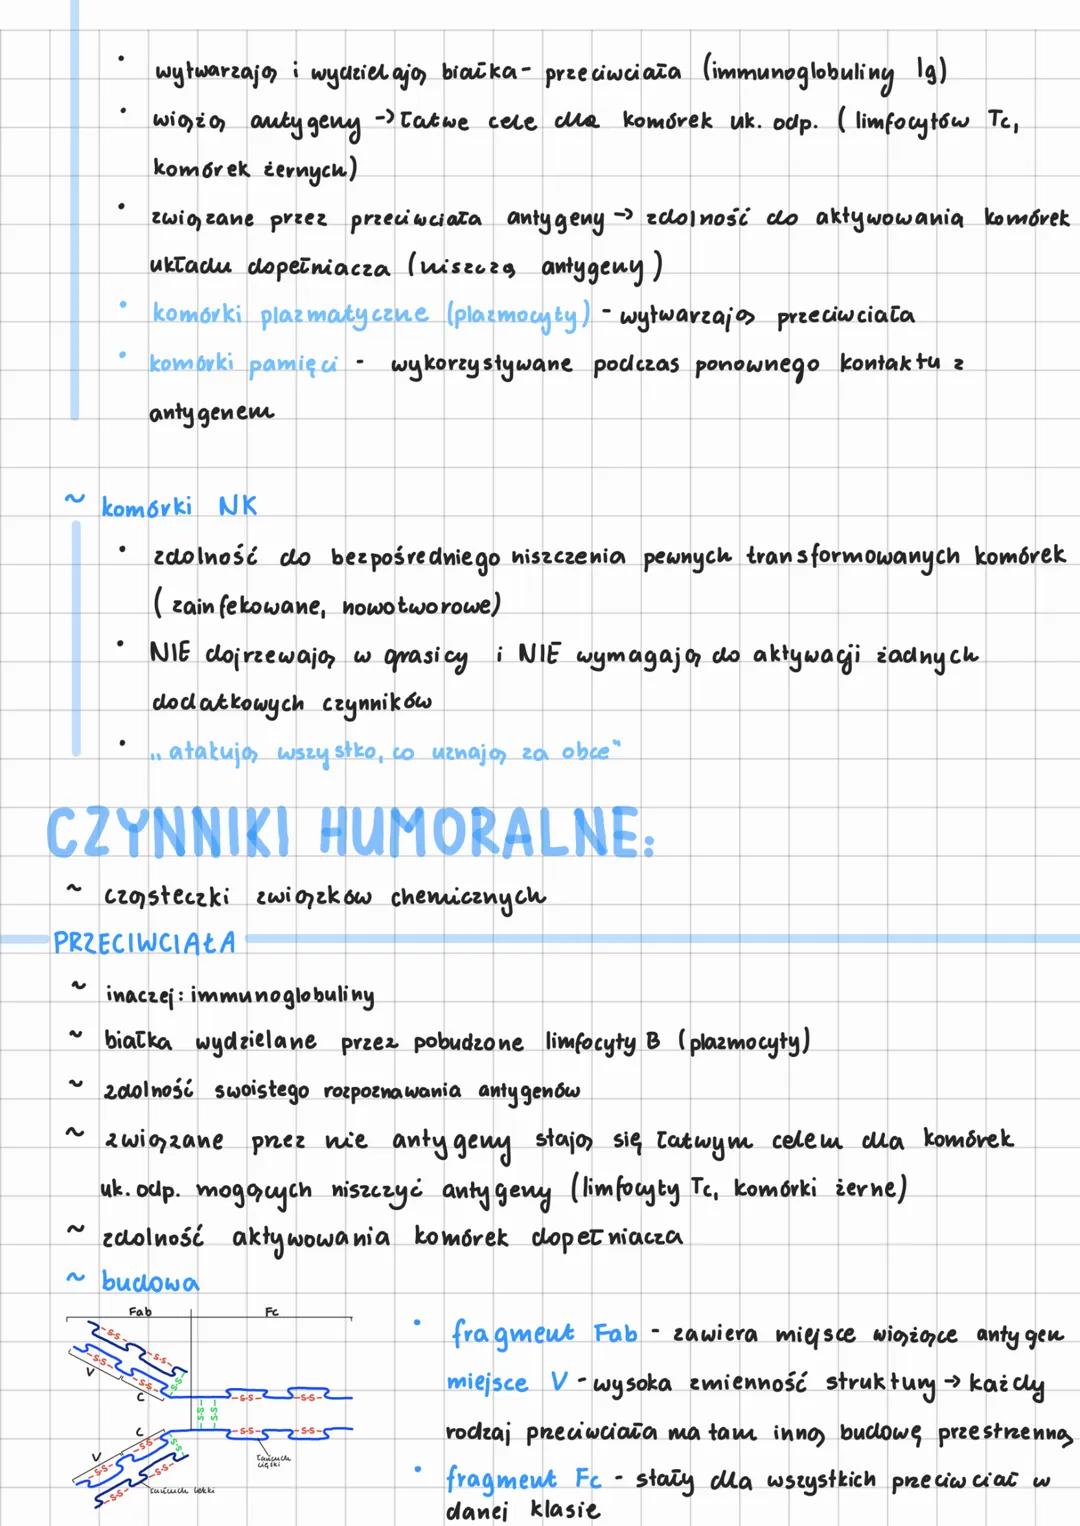 • wytwarzają i wydzielają białka- przeciwciała (immunoglobuliny Ig)
• wiążą antygeny -> łatwe cele dla komórek uk. odp. (limfocytów Tc,
komórek żernych)
• związane przez przeciwciała antygeny -> zdolność do aktywowania komórek
układu dopełniacza (niszczą antygeny)
• komórki plazmatyczne (plazmocyty) - wytwarzają przeciwciała
• komórki pamięci - wykorzystywane podczas ponownego kontaktu z
antygenem
~ komórki NK
• zdolność do bezpośredniego niszczenia pewnych transformowanych komórek
(zainfekowane, nowotworowe)
• NIE dojrzewają w grasicy i NIE wymagają do aktywacji żadnych
dodatkowych czynników
• „atakują wszystko, co uznają za obce"
CZYNNIKI HUMORALNE:
~ cząsteczki związków chemicznych
PRZECIWCIAŁA
~ inaczej: immunoglobuliny
~ białka wydzielane przez pobudzone limfocyty B (plazmocyty)
~ zdolność swoistego rozpoznawania antygenów
~ związane przez nie antygeny stają się łatwym celem dla komórek
uk. odp. mogących niszczyć antygeny (limfocyty Tc, komórki żerne)
~ zdolność aktywowania komórek dopełniacza
~ budowa
Fab Fc
-S-S-
-S-S-
-S-S-
-S-S-
-S-S-
V
C
-S-S- -S-S-
-S-S-
-S-S-
-S-S- -S-S-
C
V
-S-S-
-S-S-
-S-S-
-S-S-
-S-S-
łańcuch
ciężki
łańcuch lekki
• fragment Fab - zawiera miejsce wiążące antygen
miejsce V - wysoka zmienność struktury -> każdy
rodzaj przeciwciała ma tam inną budowę przestrzenną
• fragment Fc - stały dla wszystkich przeciwciał w
danej klasie